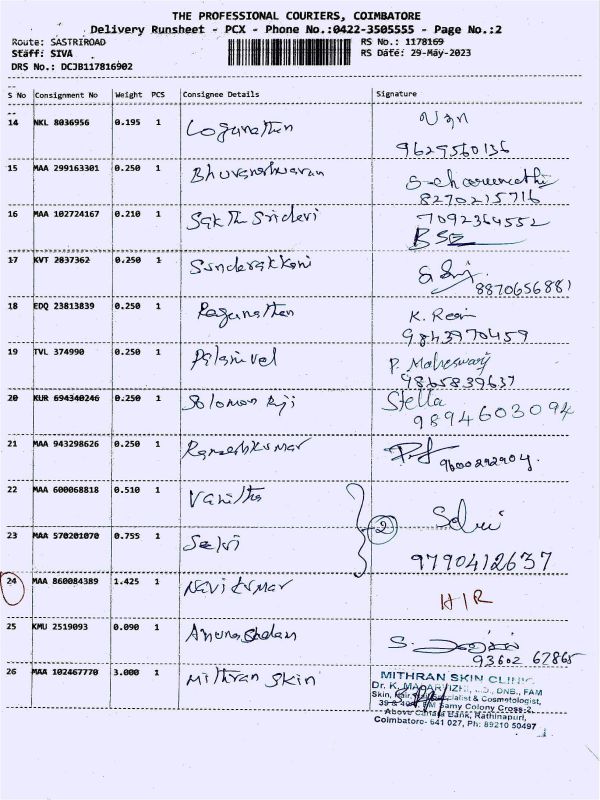 THE PROFESSIONAL COURIERS, COIMBATORE
Delivery Runsheet - PCX - Phone No.:0422-3505555 - Page No.:2
Route: SASTRIROAD RS No.: 1178169
Staff: SIVA RS Date: 29-May-2023
DRS No.: DCJB117816902
S No Consignment No Weight PCS Consignee Details Signature
14 NKL 8036956 0.195 1 Logunathen
9629560136
15 MAA 299163301 0.250 1 Bhuvaneshwaran
8270215716
16 MAA 102724167 0.210 1 Sakthi Sridevi 7092364552
17 KVT 2837362 0.250 1
8870656881
18 EDQ 23813839 0.250 1 Ragunathen K.
9843970459
19 TVL 374990 0.250 1 Palanivel P. Maheswari
9865839637
20 KUR 694340246 0.250 1 Solomon Stella
9894603094
21 MAA 943298626 0.250 1 Rameshkumar 9600292904
22 MAA 600068818 0.510 1 Vanitha
2 Selvi
23 MAA 570201070 0.755 1 Selvi
9790412637
24 MAA 860084389 1.425 1 Navikumar
H/R
25 KMU 2519093 0.090 1 S.
93602 67865
26 MAA 102467770 3.000 1 Mithran Skin
MITHRAN SKIN CLINIC
Dr. K. DNB., FAM
Skin, & Cosmetologist,
39 & Samy Colony Cross-2,
Above Canara Bank, Rathinapuri,
Coimbatore- 641 027, Ph: 89210 50497